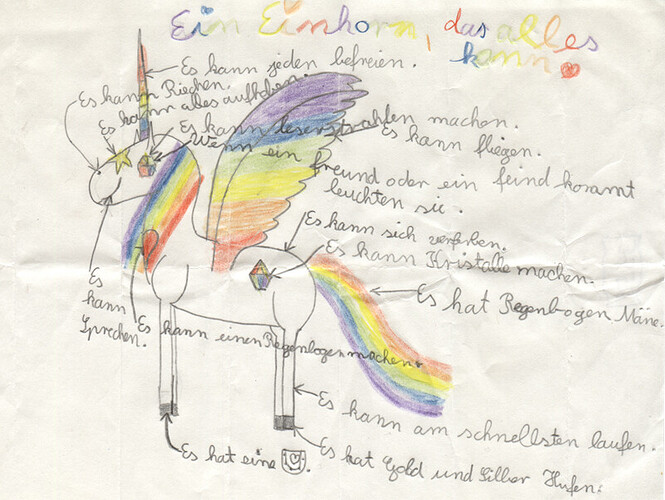 Ein Einhorn, das alles
kann.
Es kann jeden befreien.
Es kann Riechen.
Es kann alles aufheben.
Es kann leserstrahlen machen.
Es kann fliegen.
Wenn ein freund oder ein feind kommt
leuchten sie.
Es kann sich verferben.
Es kann Kristalle machen.
Es hat Regenbogen Mäne.
Es
kann
Sprechen.
Es kann einen Regenbogen machen
Es kann am schnellsten laufen.
Es hat eine
Es hat Gold und Silber Hufen.